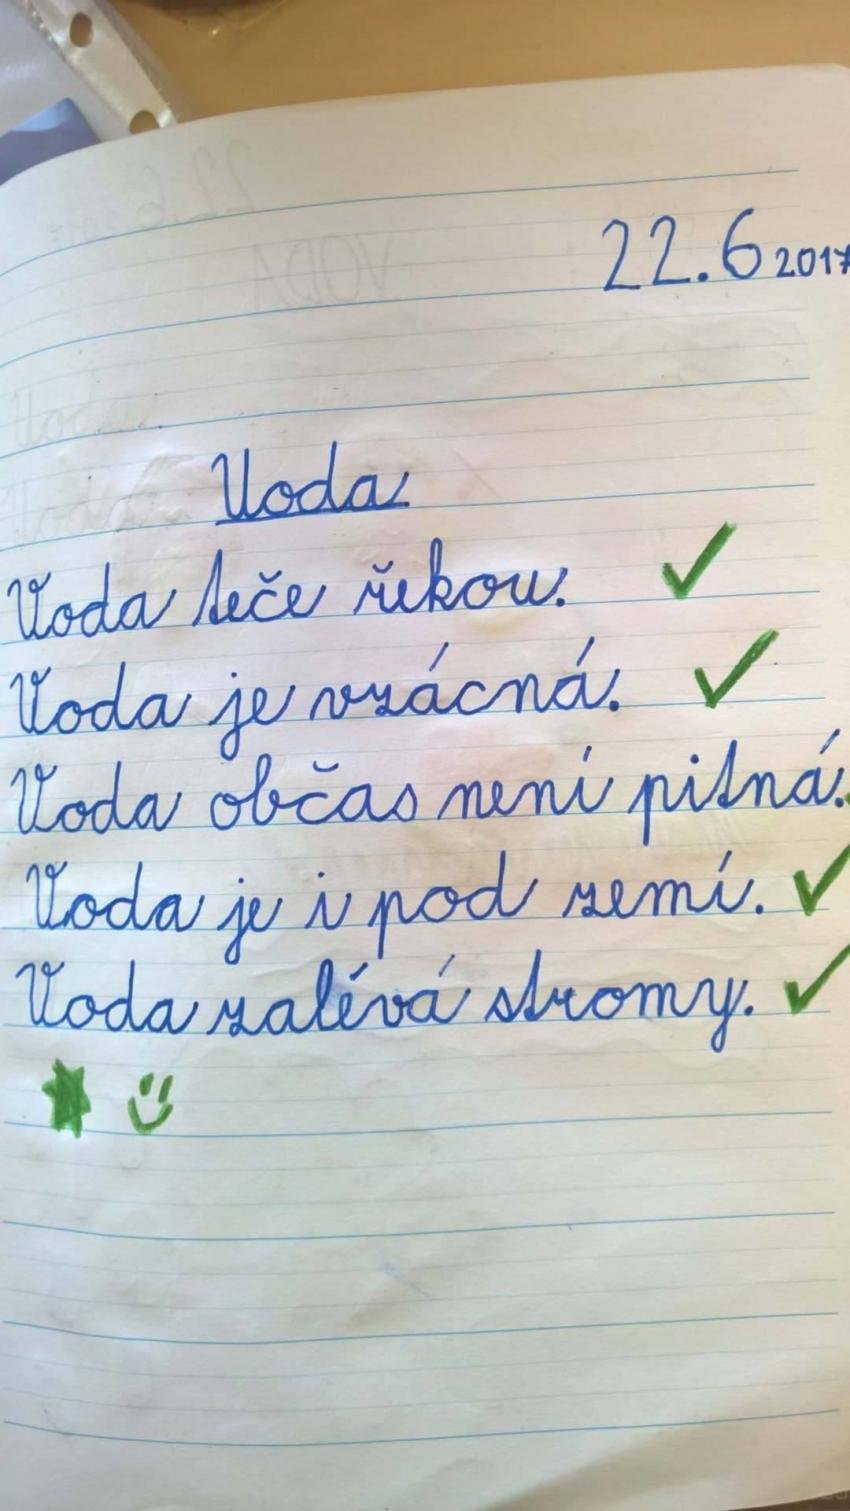 22.6 2017
Voda
Voda teče řekou.
Voda je vzácná.
Voda občas není pitná.
Voda je i pod zemí.
Voda zalévá stromy.